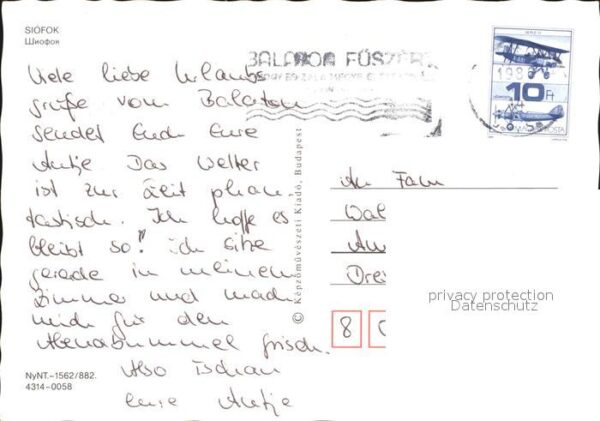 SIÓFOK
Шиофок
BALATON FŰSZÉRT
198
10 Ft
MAGYAR POSTA
Viele liebe Urlaubs
grüße vom Balaton
sendet Euch Eure
Antje Das Wetter
ist zur Zeit phan-
tastisch. Ich hoffe es
bleibt so! ich sitze
gerade in meinem
Zimmer und mach
mich für den
Abendbummel frisch.
Also tschau
eure Antje
© Képzőművészeti Kiadó, Budapest
An Fam
Wal
An
Dre
8
privacy protection
Datenschutz
NyNT.–1562/882.
4314–0058